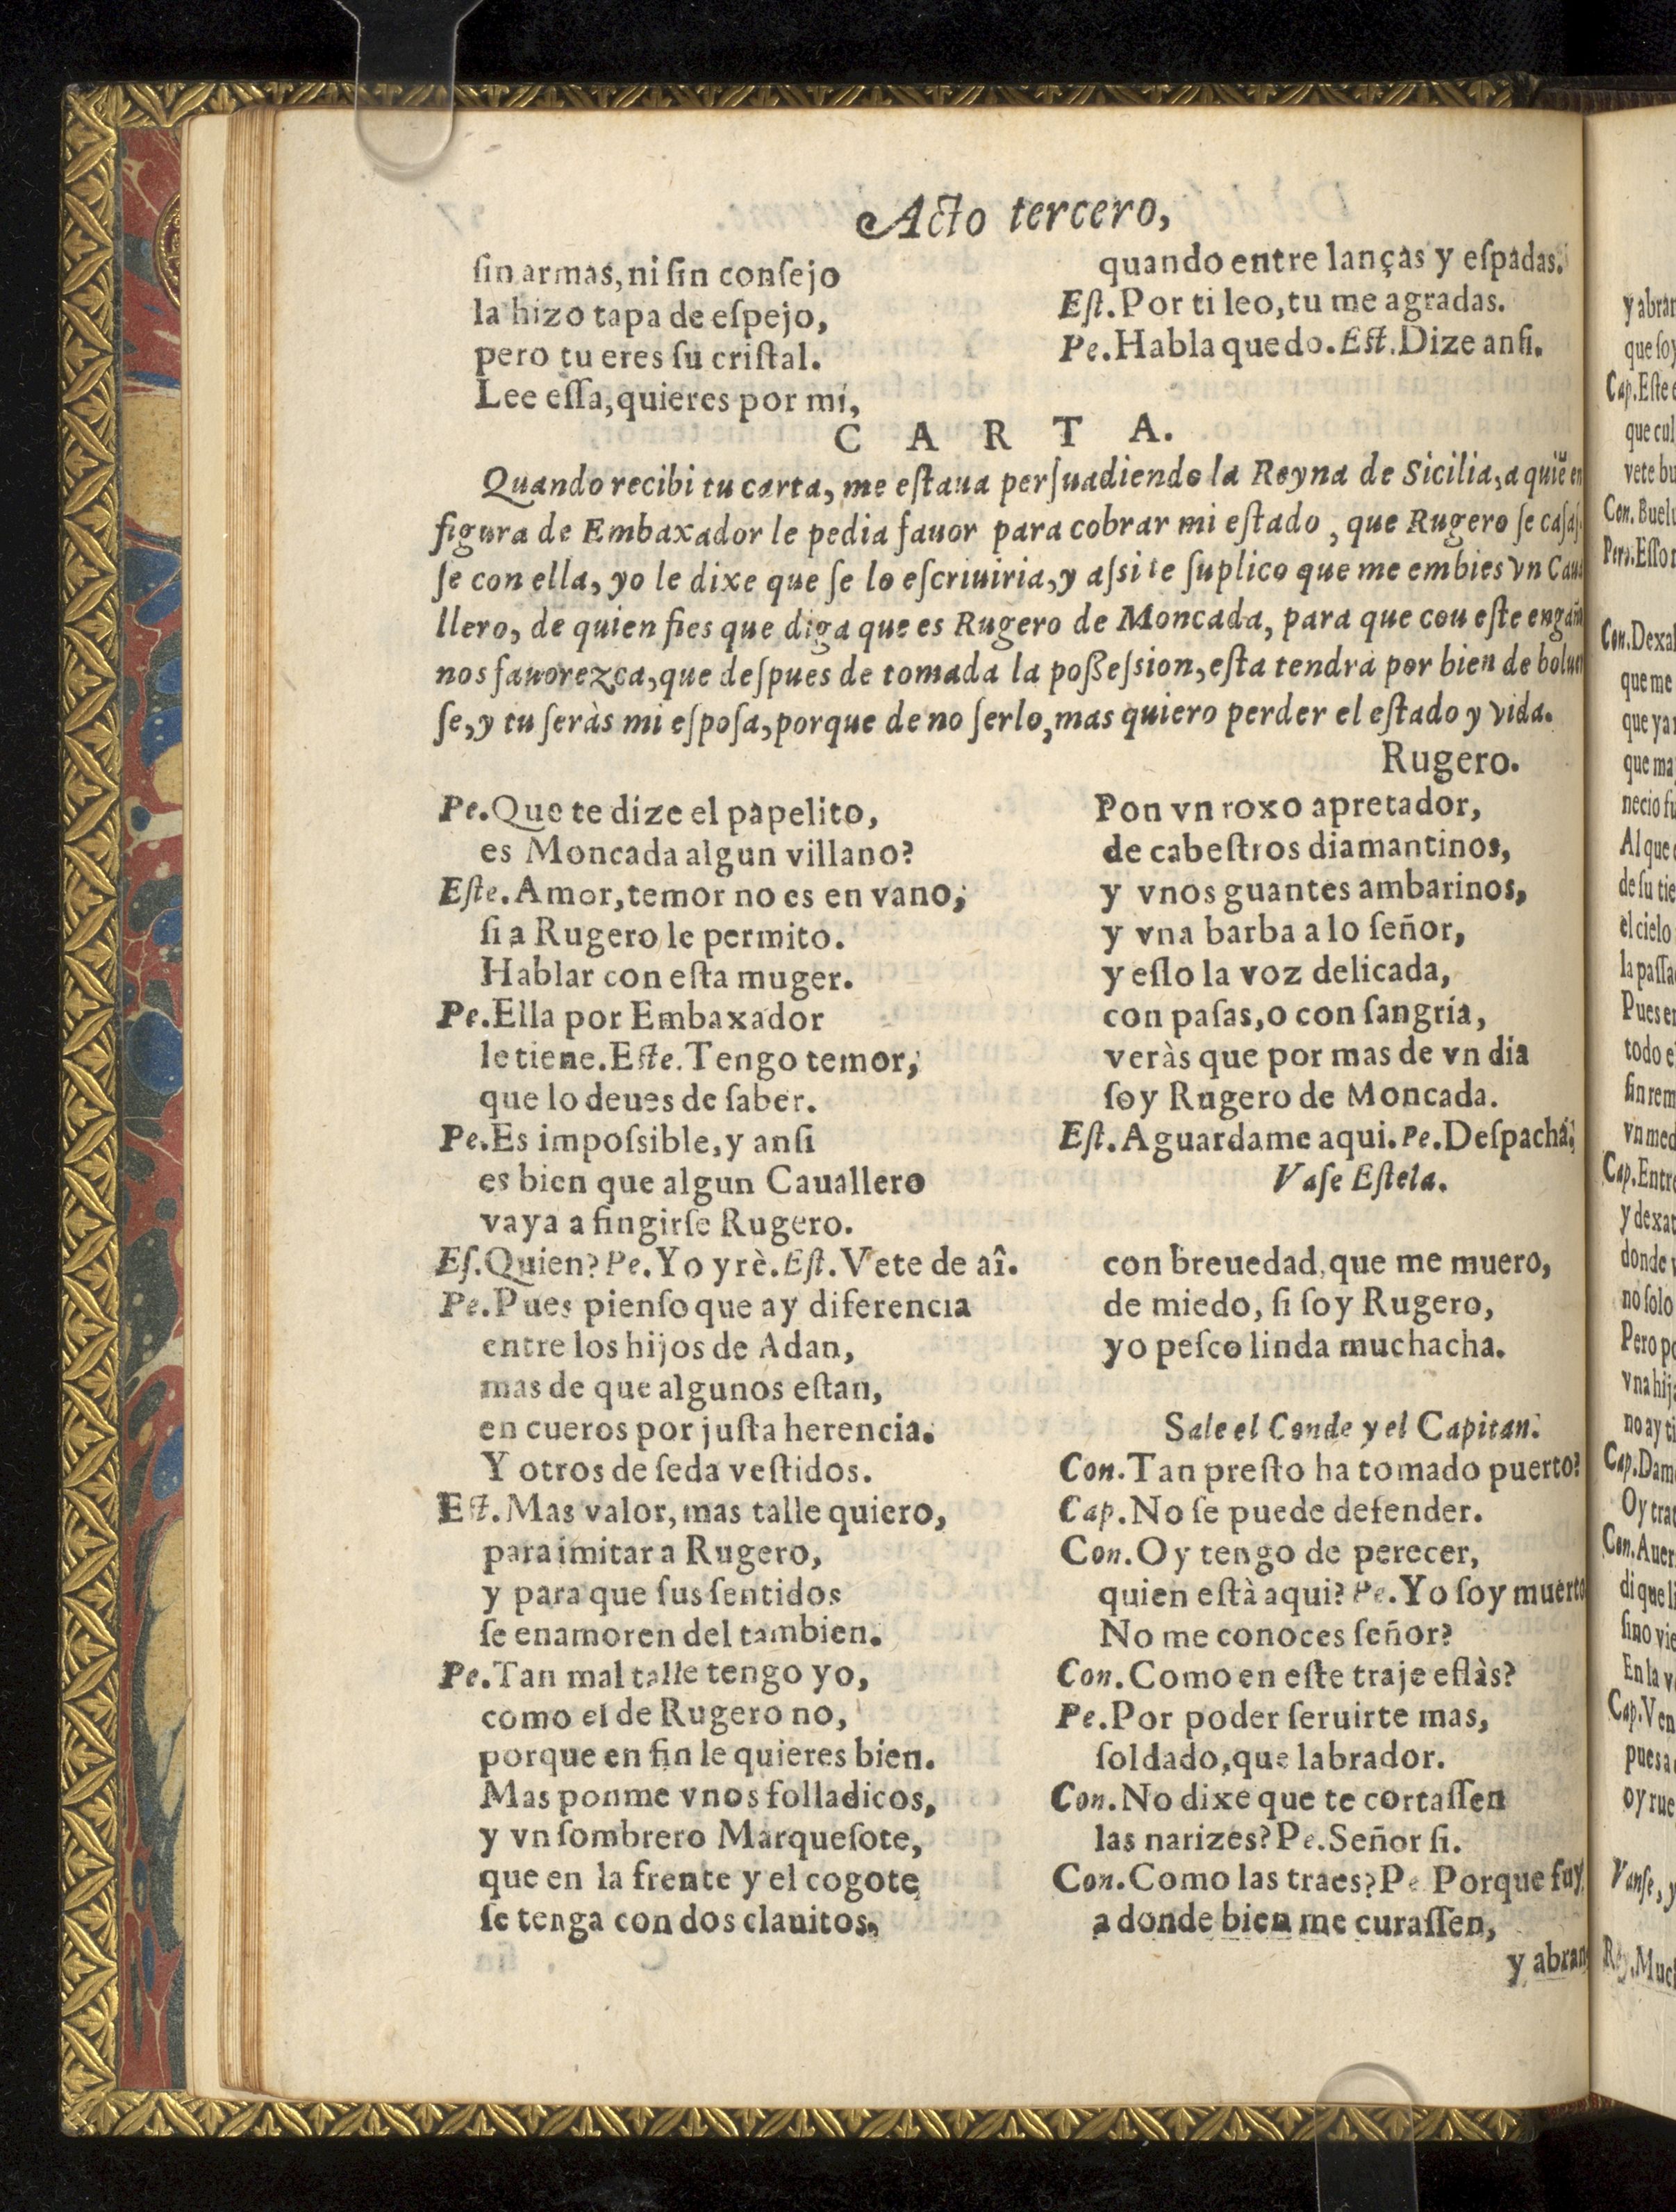 Acto tercero,
ſin armas, ni ſin conſejo
la hizo tapa de eſpejo,
pero tu eres ſu criſtal.
Lee eſſa, quieres por mi,
quando entre lanças y eſpadas.
Eſt. Por ti leo, tu me agradas.
Pe. Habla quedo. Eſt. Dize anſi.
C A R T A.
Quando recibi tu carta, me eſtaua perſuadiendo la Reyna de Sicilia, a quiẽ en
figura de Embaxador le pedia fauor para cobrar mi eſtado, que Rugero ſe caſaſ-
ſe con ella, yo le dixe que ſe lo eſcriuiria, y aſsi te ſuplico que me embies vn Caua
llero, de quien fies que diga que es Rugero de Moncada, para que cou eſte engaño
nos fauorezca, que deſpues de tomada la poßeſsion, eſta tendrà por bien de boluer
ſe, y tu ſeràs mi eſpoſa, porque de no ſerlo, mas quiero perder el eſtado y vida.
Rugero.
Pe. Que te dize el papelito,
es Moncada algun villano?
Eſte. Amor, temor no es en vano,
ſi a Rugero le permito.
Hablar con eſta muger.
Pe. Ella por Embaxador
le tiene. Eſte. Tengo temor,
que lo deues de ſaber.
Pe. Es impoſsible, y anſi
es bien que algun Cauallero
vaya a fingirſe Rugero.
Eſ. Quien? Pe. Yo yrè. Eſt. Vete de aî.
Pe. Pues pienſo que ay diferencia
entre los hijos de Adan,
mas de que algunos eſtan,
en cueros por juſta herencia.
Y otros de ſeda veſtidos.
Eſt. Mas valor, mas talle quiero,
para imitar a Rugero,
y para que ſus ſentidos
ſe enamoren del tambien.
Pe. Tan mal talle tengo yo,
como el de Rugero no,
porque en fin le quieres bien.
Mas ponme vnos folladicos,
y vn ſombrero Marqueſote,
que en la frente y el cogote
ſe tenga con dos clauitos,
Pon vn roxo apretador,
de cabeſtros diamantinos,
y vnos guantes ambarinos,
y vna barba a lo ſeñor,
y eſlo la voz delicada,
con paſas, o con ſangria,
veràs que por mas de vn dia
ſoy Rugero de Moncada.
Eſt. Aguardame aqui. Pe. Deſpacha,
Vaſe Eſtela.
con breuedad, que me muero,
de miedo, ſi ſoy Rugero,
yo peſco linda muchacha.
Sale el Conde y el Capitan.
Con. Tan preſto ha tomado puerto?
Cap. No ſe puede defender.
Con. Oy tengo de perecer,
quien eſtà aqui? Pe. Yo ſoy muerto
No me conoces ſeñor?
Con. Como en eſte traje eſlàs?
Pe. Por poder ſeruirte mas,
ſoldado, que labrador.
Con. No dixe que te cortaſſen
las narizes? Pe. Señor ſi.
Con. Como las traes? Pe Porque fuy
a donde bien me curaſſen,
y abran
y abran
que ſoy
Cap. Eſte
que cul
vete bu
Con. Buelu
Pero. Eſſo
Con. Dexal
que me
que ya
que ma
necio fu
Al que
de ſu tie
el cielo
la paſſa
Pues en
todo e
ſin rem
vn med
Cap. Entre
y dexat
donde
no ſolo
Pero po
vna hij
no ay ti
Cap. Dam
Oy trat
Con. Auer
di que li
ſino vie
En la v
Cap. Ven
pues a
oy rue
Vanſe, y
Rey. Much